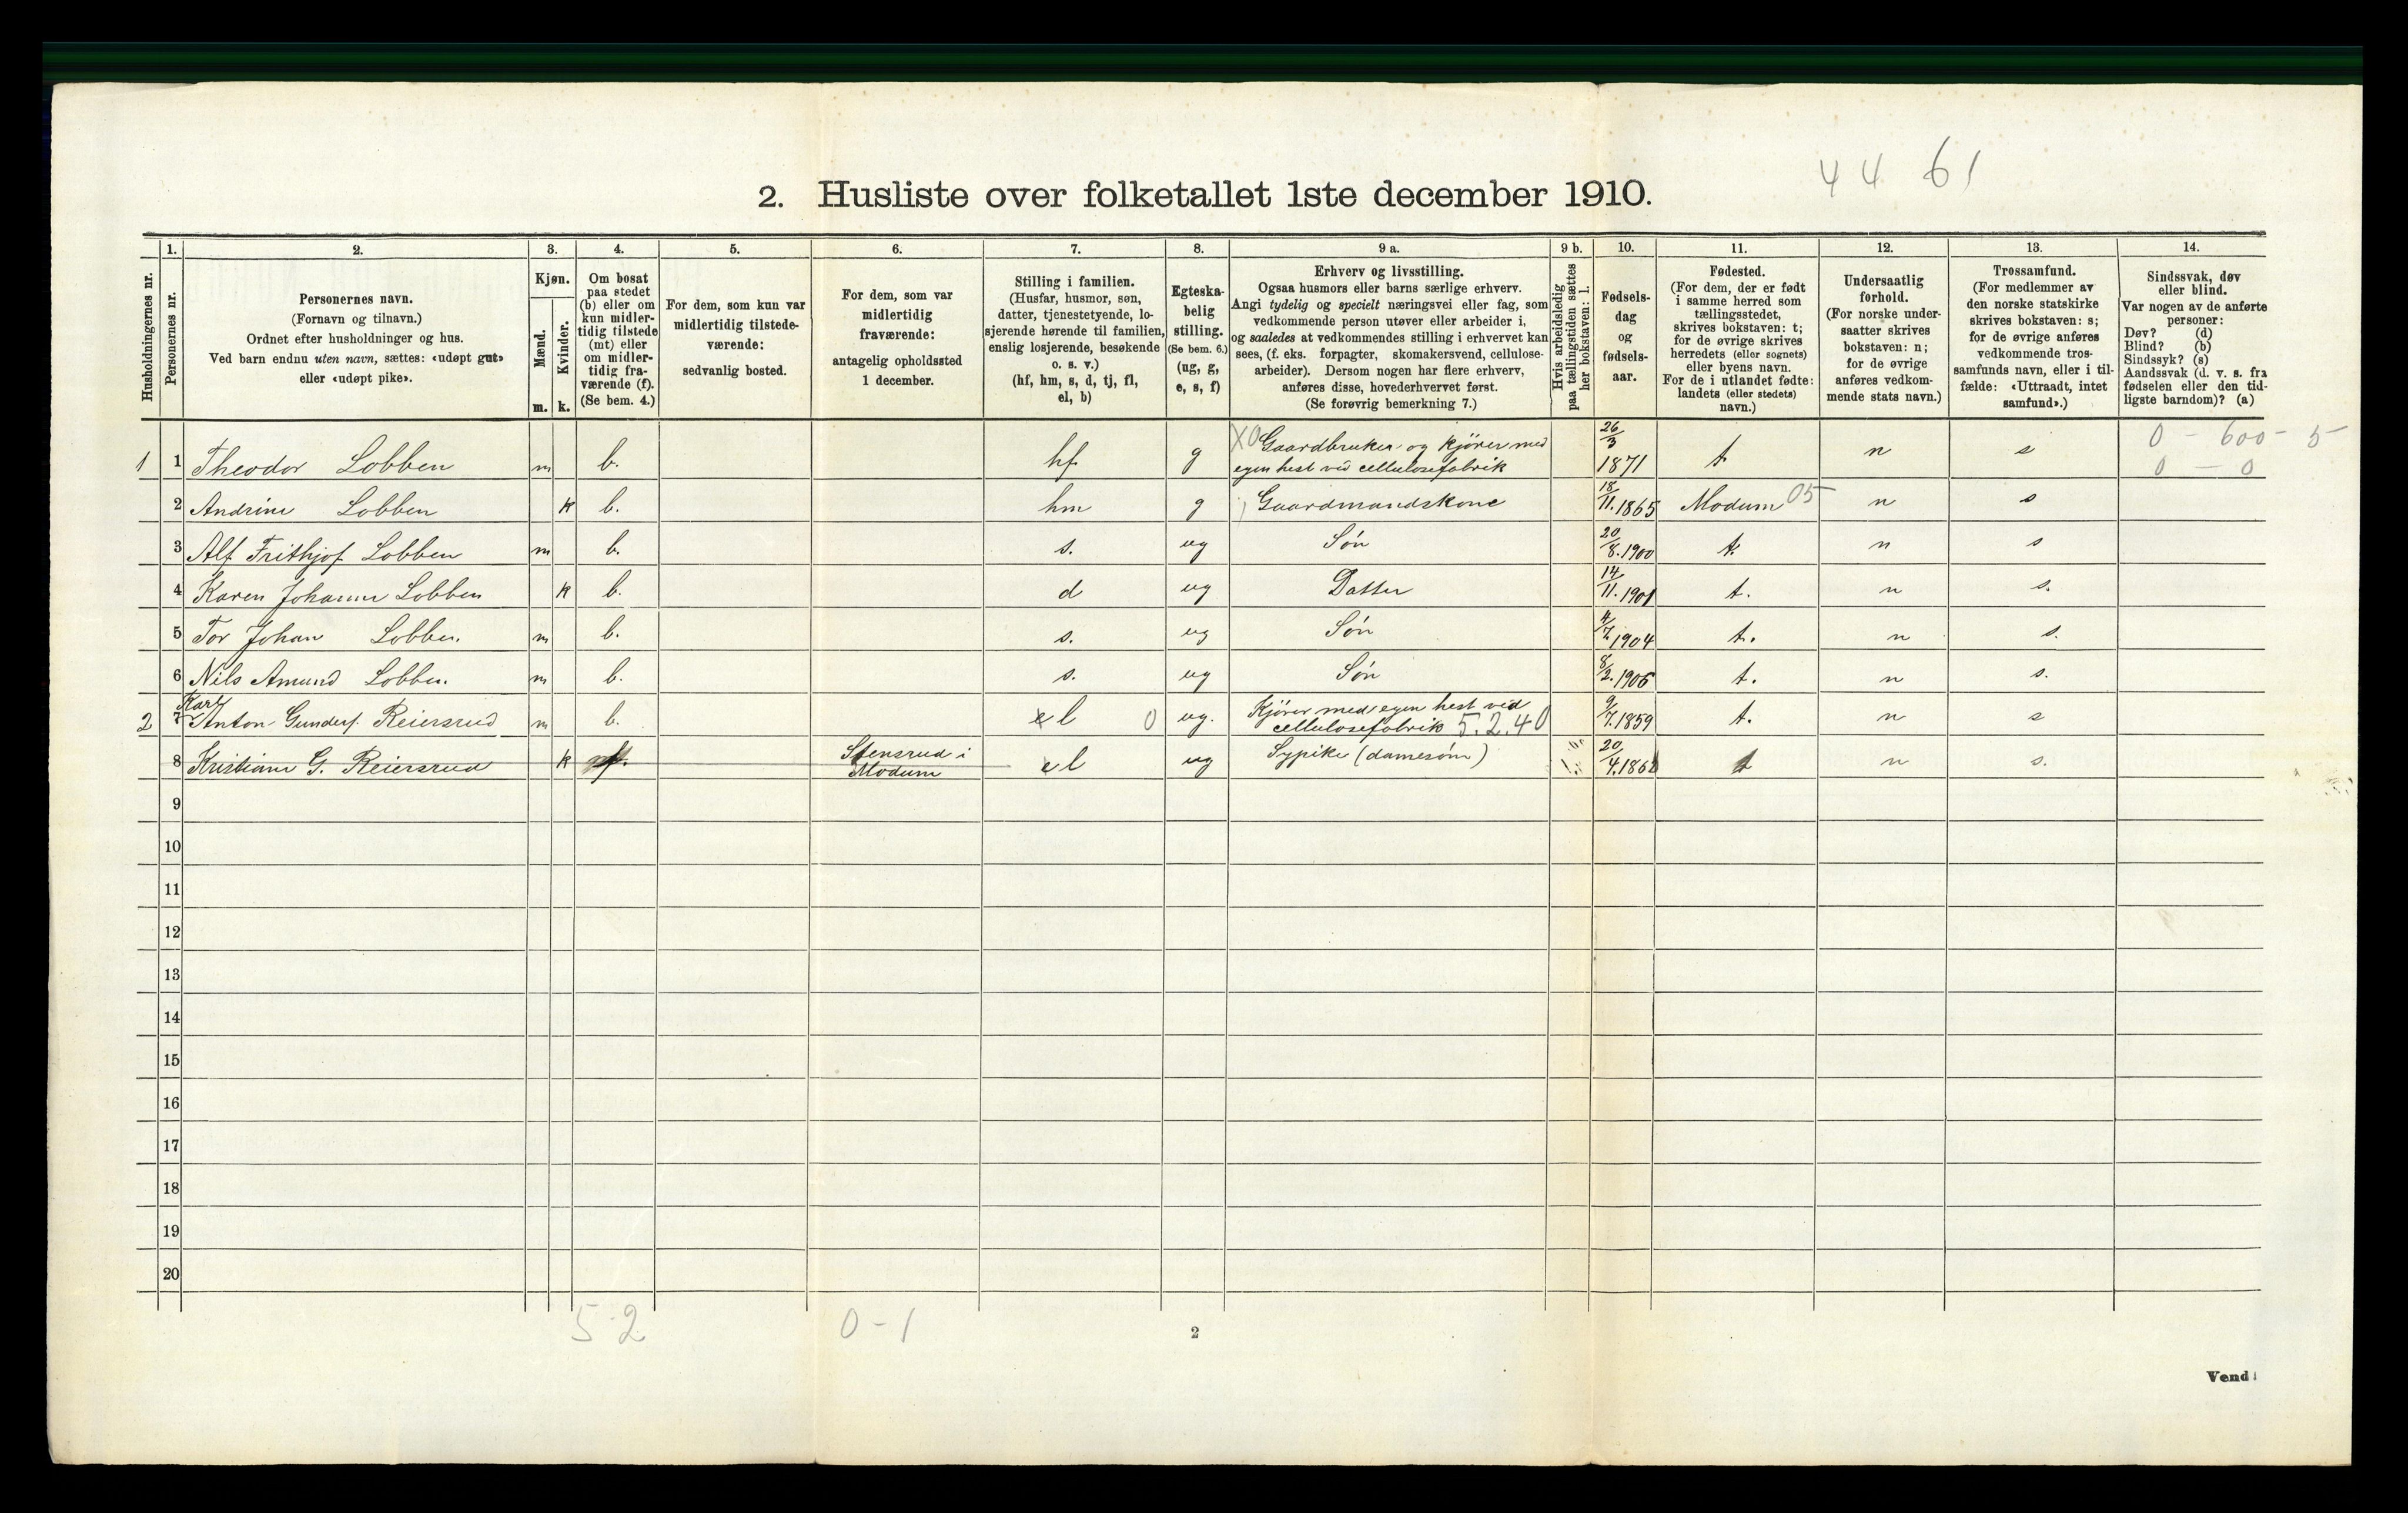 44 61
2. Husliste over folketallet 1ste december 1910.
Husholdningernes nr.
1.
Personernes nr.
2.
Personernes navn.
(Fornavn og tilnavn.)
Ordnet efter husholdninger og hus.
Ved barn endnu uten navn, sættes: «udøpt gut»
eller «udøpt pike».
3.
Kjøn.
Mænd.
Kvinder.
m. k.
4.
Om bosat
paa stedet
(b) eller om
kun midler-
tidig tilstede
(mt) eller
om midler-
tidig fra-
værende (f).
(Se bem. 4.)
5.
For dem, som kun var
midlertidig tilstede-
værende:
sedvanlig bosted.
6.
For dem, som var
midlertidig
fraværende:
antagelig opholdssted
1 december.
7.
Stilling i familien.
(Husfar, husmor, søn,
datter, tjenestetyende, lo-
sjerende hørende til familien,
enslig losjerende, besøkende
o. s. v.)
(hf, hm, s, d, tj, fl,
el, b)
8.
Egteska-
belig
stilling.
(Se bem. 6.)
(ug, g,
e, s, f)
9 a.
Erhverv og livsstilling.
Ogsaa husmors eller barns særlige erhverv.
Angi tydelig og specielt næringsvei eller fag, som
vedkommende person utøver eller arbeider i,
og saaledes at vedkommendes stilling i erhvervet kan
sees, (f. eks. forpagter, skomakersvend, cellulose-
arbeider). Dersom nogen har flere erhverv,
anføres disse, hovederhvervet først.
(Se forøvrig bemerkning 7.)
9 b.
Hvis arbeidsledig
paa tællingstiden sættes
her bokstaven: l.
10.
Fødsels-
dag
og
fødsels-
aar.
11.
Fødested.
(For dem, der er født
i samme herred som
tællingsstedet,
skrives bokstaven: t;
for de øvrige skrives
herredets (eller sognets)
eller byens navn.
For de i utlandet fødte:
landets (eller stedets)
navn.)
12.
Undersaatlig
forhold.
(For norske under-
saatter skrives
bokstaven: n;
for de øvrige
anføres vedkom-
mende stats navn.)
13.
Trossamfund.
(For medlemmer av
den norske statskirke
skrives bokstaven: s;
for de øvrige anføres
vedkommende tros-
samfunds navn, eller i til-
fælde: «Uttraadt, intet
samfund».)
14.
Sindssvak, døv
eller blind.
Var nogen av de anførte
personer:
Døv? (d)
Blind? (b)
Sindssyk? (s)
Aandssvak (d. v. s. fra
fødselen eller den tid-
ligste barndom)? (a)
1 1 Theodor Lobben m b. hf g X0 Gaardbruker og kjører med egen hest ved cellulosefabrik 26/3 1871 t n s 0 - 600 - 5
0 - 0
2 Andrine Lobben k b. hm g Gaardmandskone 18/11.1865 Modum 05 n s
3 Alf Frithjof Lobben m b. s. ug Søn 20/8.1900 t. n s
4 Karen Johanne Lobben k b. d ug Datter 14/11.1901 t. n s.
5 Tor Johan Lobben. m b. s. ug Søn 4/7 1904 t. n s.
6 Nils Amund Lobben. m b. s. ug Søn 8/2.1906 t. n s.
2 7 Karl Anton Gunders. Reiersrud m b. el 0 ug. Kjører med egen hest ved cellulosefabrik 5.2.40 9/7.1859 t. n s
8 Kristiane G. Reiersrud k f. Stensrud i Modum el ug Sypike (damesøm) 20/4.1862 t n s.
9
10
11
12
13
14
15
16
17
18
19
20
5 2 0 - 1
2
Vend!